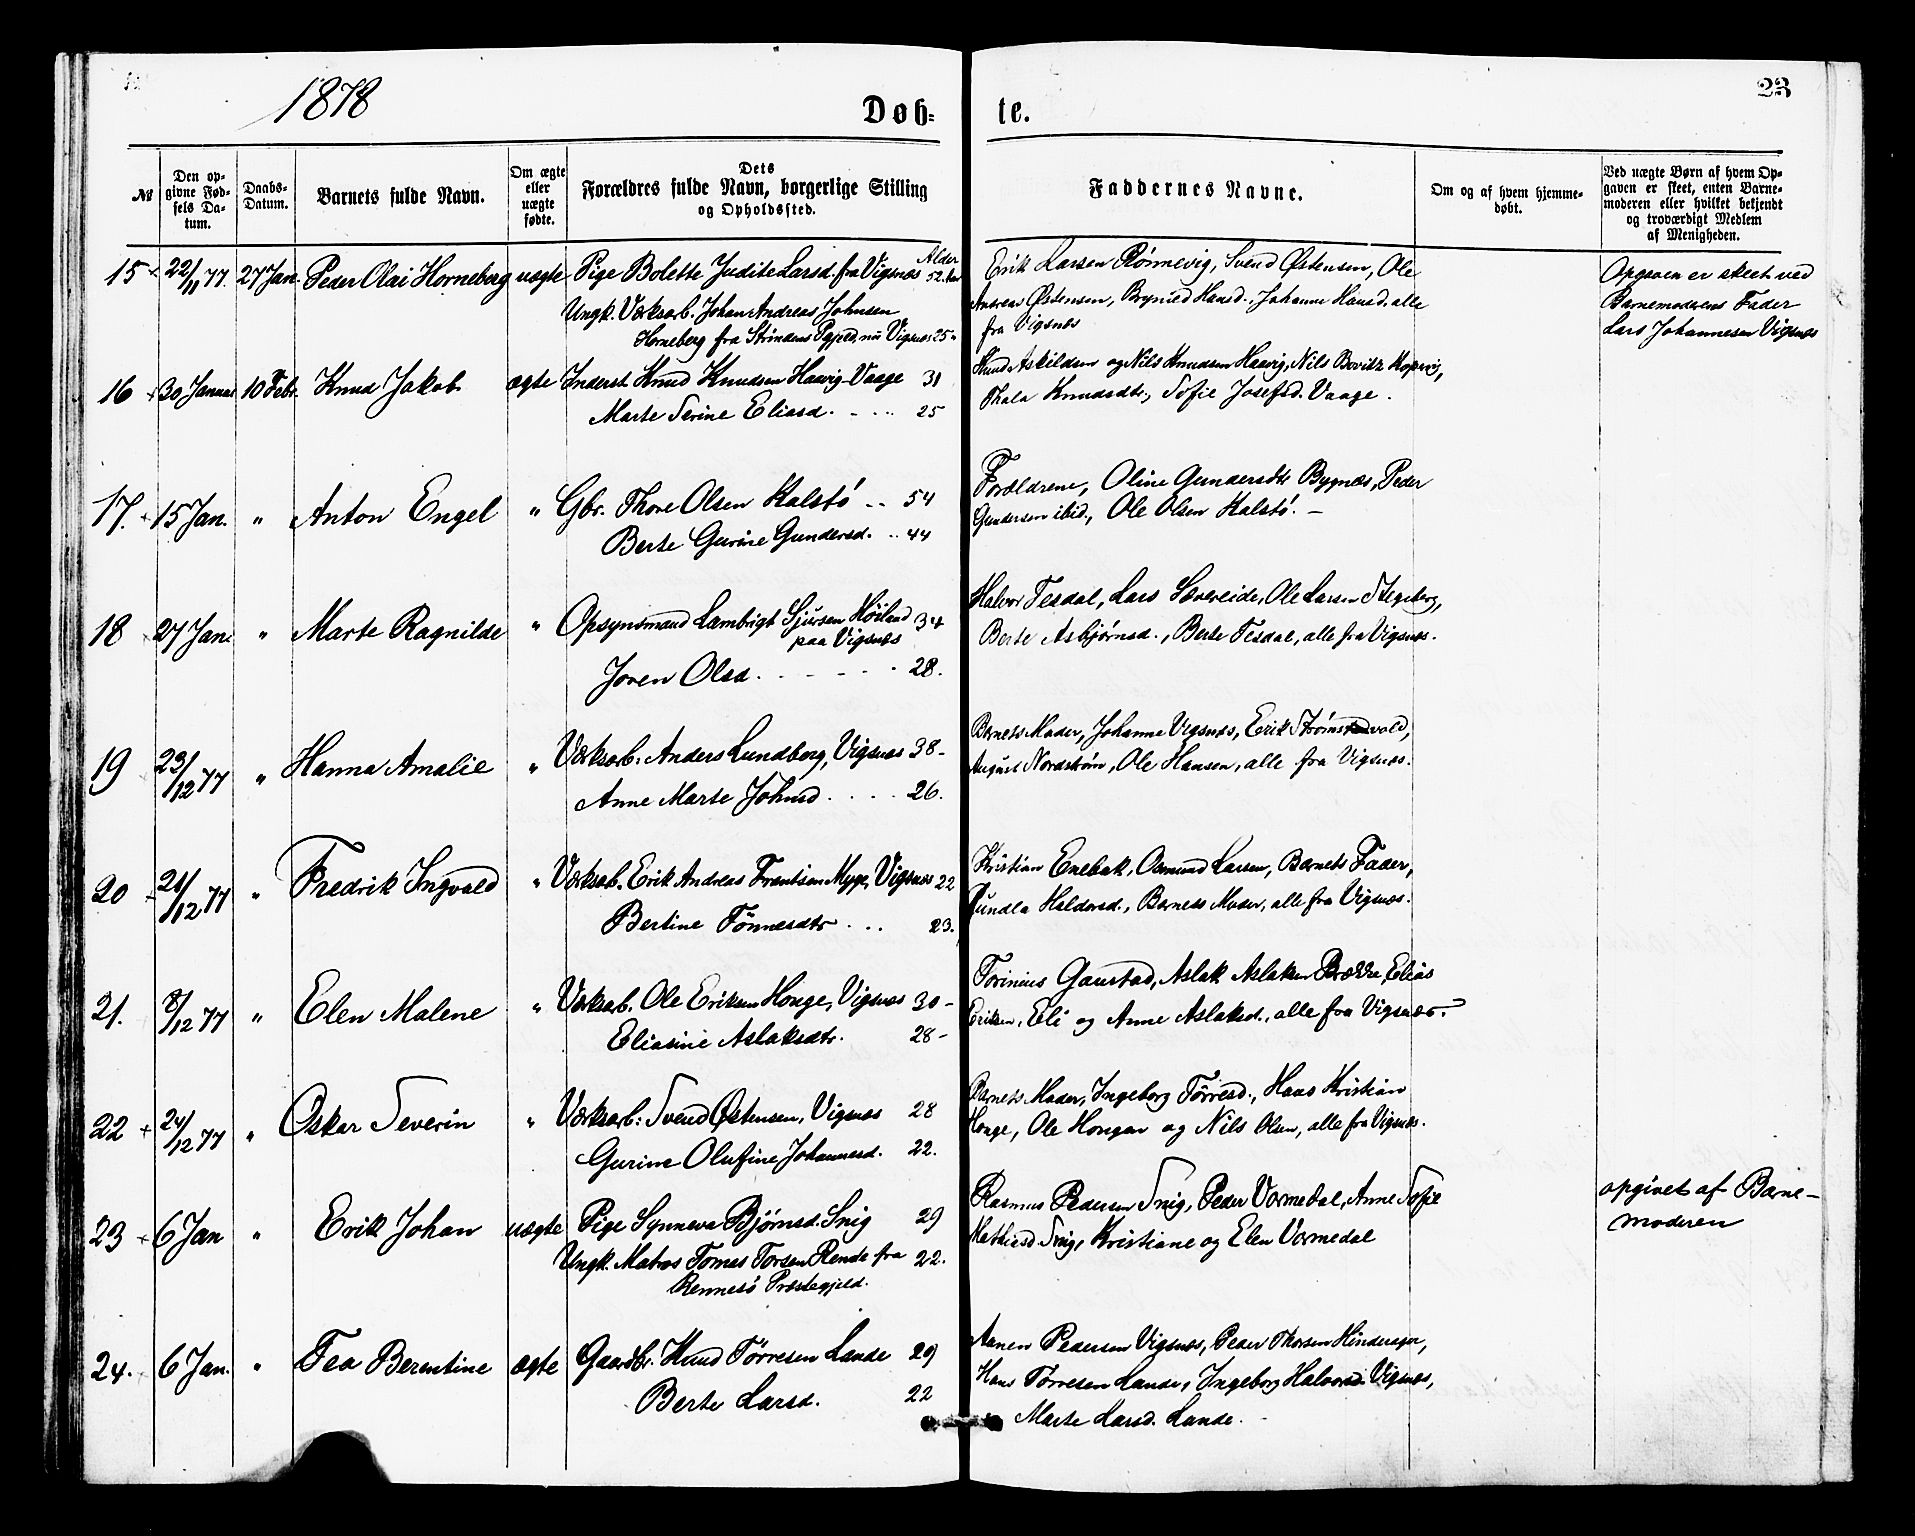 1878
Døb-
te.
23
№
Den op-
givne Fød-
sels Da-
tum.
Daabs-
Datum.
Barnets fulde Navn.
Om ægte
eller
uægte
fødte.
Dets
Forældres fulde Navn, borgerlige Stilling
og Opholdssted.
Faddernes Navne.
Om og af hvem hjemme-
døbt.
Ved uægte Børn af hvem Op-
gaven er skeet, enten Barne-
moderen eller hvilket bekjendt
og troværdigt Medlem
af Menigheden.
Alder
15 22/11 77. 27 Jan. Peder Olai Horneberg uægte Pige Bolette Judite Larsd. fra Vigsnæs 52.
Ungk. Værksarb. Johan Andreas Johnsen
Horneberg fra Strindens Pgjeld, nu Vigsnæs 25
Erik Larsen Rønnevig, Svend Østensen, Ole
Andreas Østensen, Brynild Hansd., Johanne Hansd. alle
fra Vigsnæs
Opgaven er skeet ved
Barnemoderens Fader
Lars Johannesen Vigsnæs
16 30 Januar 10 Febr. Knud Jakob ægte Inderst Knud Knudsen Haavig-Vaage 31
Marte Serine Eliasd. 25
Knud Askildsen og Nils Knudsen Haavig, Nils
Thala Knudsdtr., Sofie Josefsd. Vaage.
17. 15 Jan. " Anton Engel " Gbr. Thore Olsen Kalstø .. 54
Berte Gurine Gundersd. .. 44
Forældrene, Oline Gundersdtr Bygnæs, Peder
Gundersen ibid., Ole Olsen Kalstø. -
18 27 Jan. " Marte Ragnilde " Opsynsmand Lambrigt Sjursen Høiland 34
paa Vigsnæs
Joren Olsd. 28.
Halvor Tesdal, Lars Sævereide, Ole Larsen
Berte Asbjørnsd., Berte Tesdal, alle fra Vigsnæs.
19 23/12 77 " Hanna Amalie " Værksarb. Anders Lundborg, Vigsnæs 38-
Anne Marte Johnsd. 26.
Barnets Moder, Johanne Vigsnæs, Erik
August Nordstrøm, Ole Hansen, alle fra Vigsnæs.
20 21/12 77 " Fredrik Ingvald " Værksarb. Erik Andreas Frantsen Myge, Vigsnæs 22
Bertine Tønnesdtr . .. 23.
Kristian Enebak, Osmund Larsen, Barnets Fader,
Gundla Haldorsd., Barnets Moder, alle fra Vigsnæs.
21. 8/12 77 " Elen Malene " Værksarb. Ole Eriksen Honge, Vigsnæs 30-
Eliasine Aslaksdtr. 28-
Torinius Gaustad, Aslak Aslaksen Brække, Elias
Eriksen, Eli og Anne Aslaksd., alle fra Vigsnæs.
22 24/12 77 " Oskar Severin " Værksarb. Svend Østensen, Vigsnæs 28
Gurine Olufine Johannesd. 22.
Barnets Moder, Ingeborg Tørresd., Hans Kristian
Honge, Ole Hongan og Nils Olsen, alle fra Vigsnæs.
23 6 Jan " Erik Johan uægte Pige Synneva Bjørnsd. Snig 29
Ungk. Matros Tomas Torsen Rende fra 22.
Rennesø Præstegjeld.
Rasmus Pedersen Snig, Peder Vormedal, Anne Sofie
Mathiasd Snig, Kristiane og Elen Vormedal
opgivet af Barne-
moderen
24. 6 Jan. " Tea Berentine ægte Gaardbr. Knud Tørresen Lande 29
Berte Larsd. 22
Aanen Pedersen Vigsnæs, Peder Thorsen Hinderager,
Hans Tørresen Lande, Ingeborg Halvorsd. Vigsnæs,
Marte Larsd. Lande.